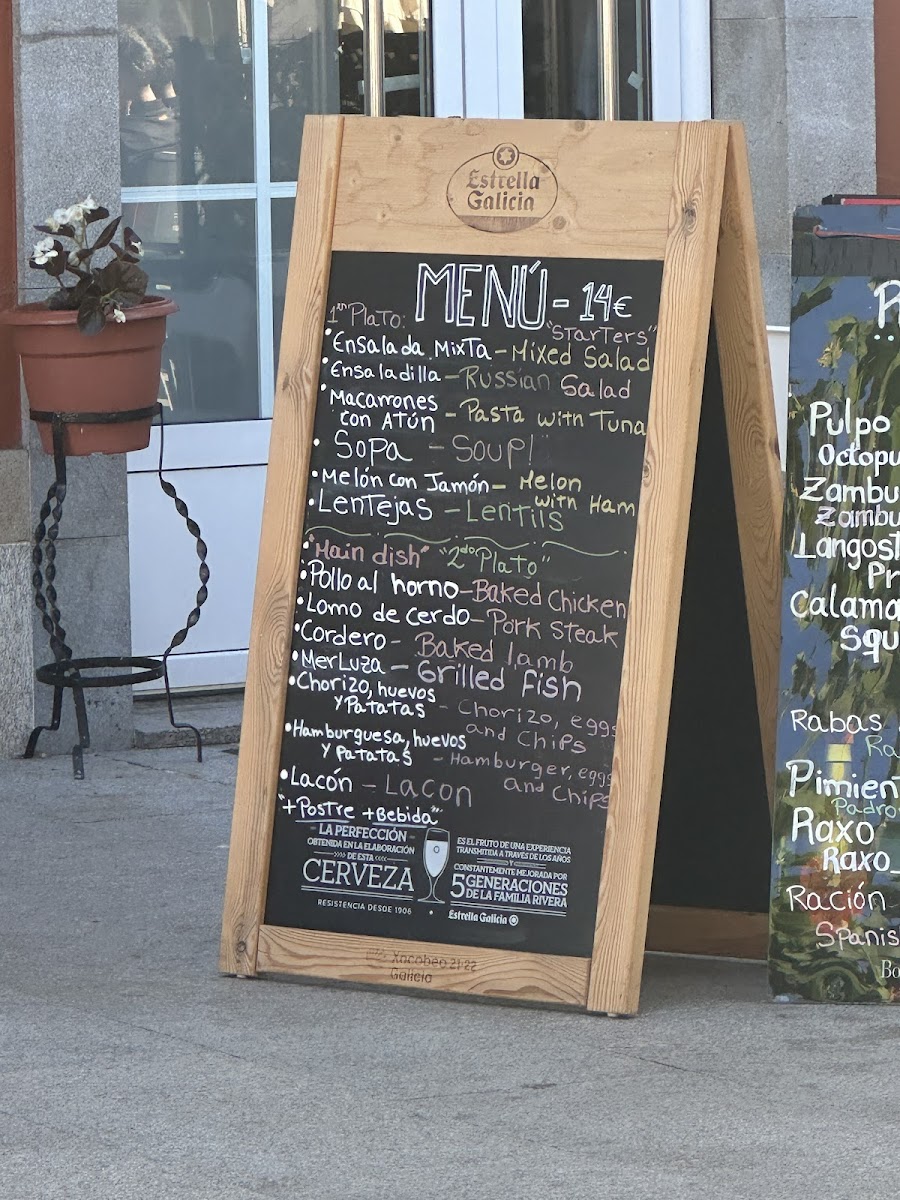 Estrella
Galicia
MENÚ - 14€
1er Plato: "Starters"
• Ensalada Mixta - Mixed Salad
• Ensaladilla - Russian Salad
• Macarrones con Atún - Pasta with Tuna
• Sopa - Soup!
• Melón con Jamón - Melon with Ham
• Lentejas - Lentils
"Main dish" "2do Plato"
• Pollo al horno - Baked Chicken
• Lomo de cerdo - Pork Steak
• Cordero - Baked lamb
• Merluza - Grilled fish
• Chorizo, huevos y Patatas - Chorizo, eggs and Chips
• Hamburguesa, huevos y Patatas - Hamburger, eggs and Chips
• Lacón - Lacon
"+ Postre + Bebida"
LA PERFECCIÓN
OBTENIDA EN LA ELABORACIÓN
DE ESTA
CERVEZA
RESISTENCIA DESDE 1906
ES EL FRUTO DE UNA EXPERIENCIA
TRANSMITIDA A TRAVÉS DE LOS AÑOS
Y
CONSTANTEMENTE MEJORADA POR
5 GENERACIONES
DE LA FAMILIA RIVERA
Estrella Galicia
Xacobeo 21·22
Galicia
Pulpo
Octopu
Zambu
Zambu
Langost
Pr
Calama
Squ
Rabas
Ra
Pimient
Padro
Raxo
Raxo
Ración
Spanis
Bo